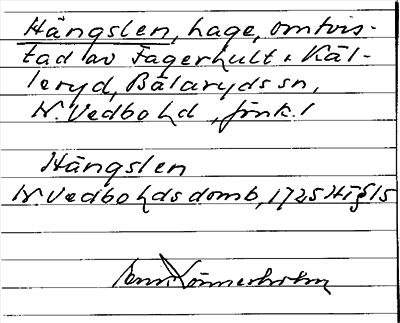 Hängslen, hage, omtvis-
tad av Fagerhult & Käl-
leryd, Bälaryds sn,
N. Vedbo hd, jönk. l
Hängslen
N. Vedbo hds domb, 1725 Ht § 15